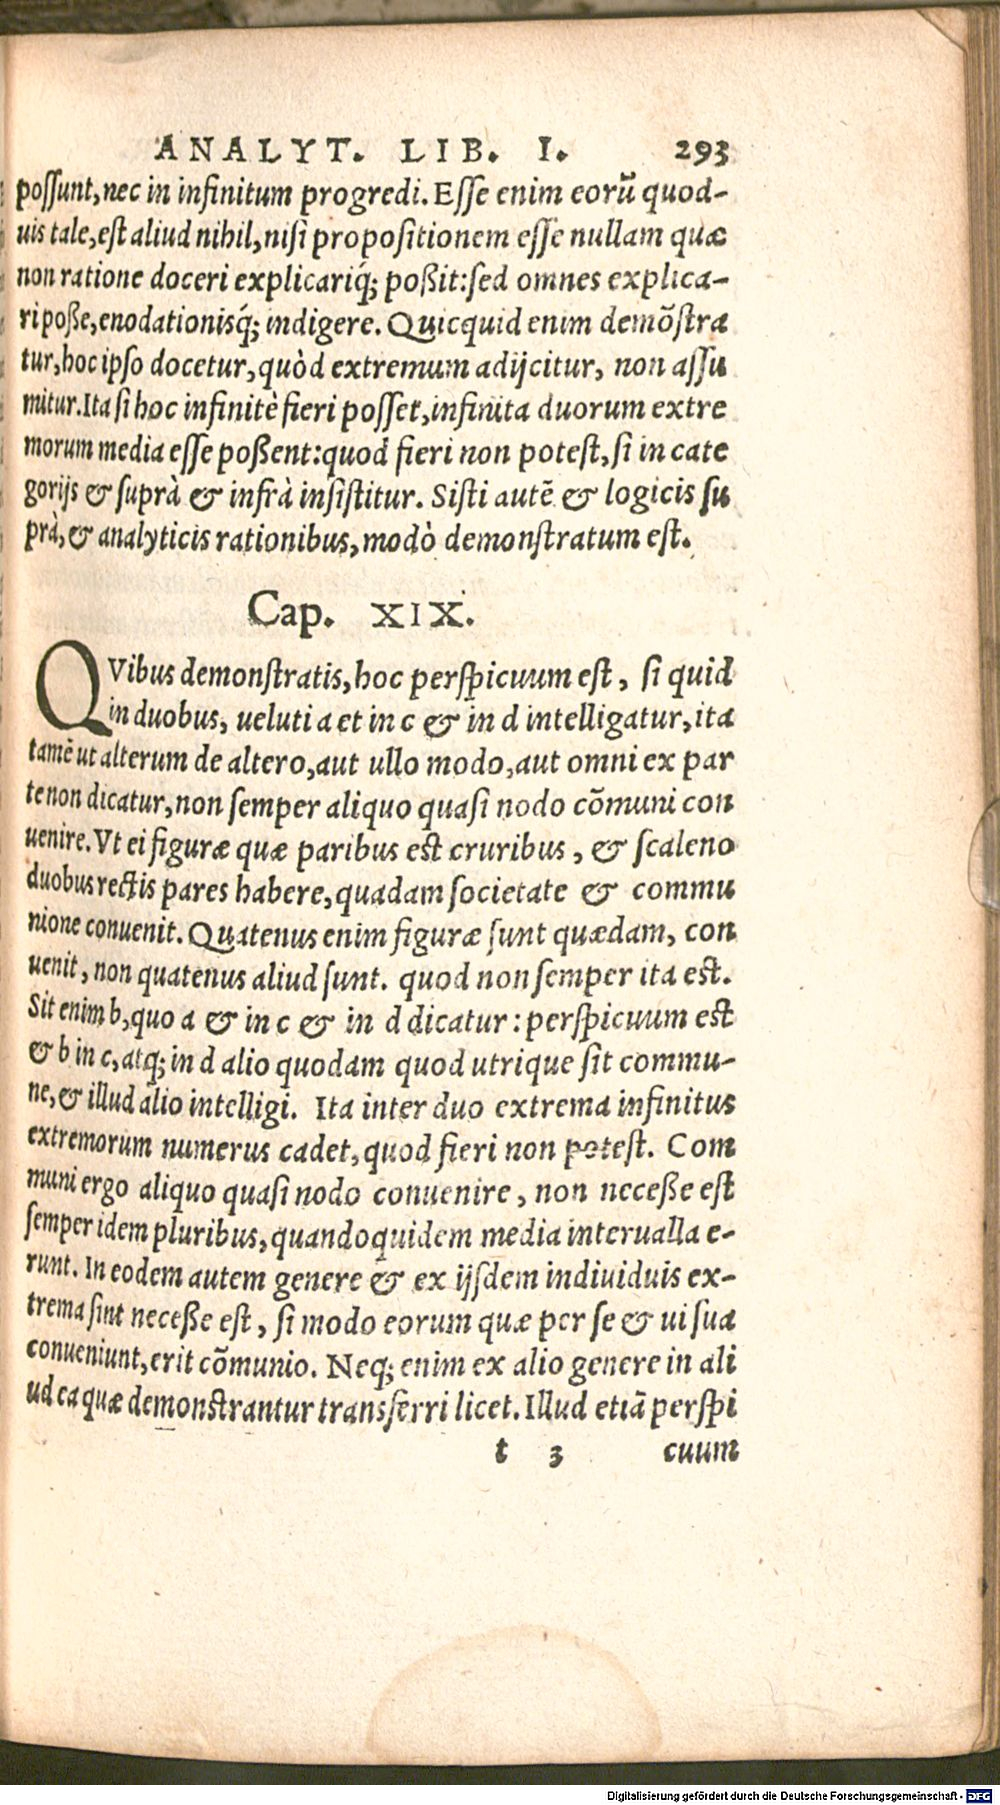 ANALYT. LIB. I. 293
possunt, nec in infinitum progredi. Esse enim eorũ quod-
uis tale, est aliud nihil, nisi propositionem esse nullam quæ
non ratione doceri explicariq́; poßit: sed omnes explica-
ri poße, enodationisq́; indigere. Quicquid enim demõstra
tur, hoc ipso docetur, quòd extremum adijcitur, non assu
mitur. Ita si hoc infinitè fieri posset, infinita duorum extre
morum media esse poßent: quod fieri non potest, si in cate
gorijs & suprà & infrà insistitur. Sisti autẽ & logicis su
prà, & analyticis rationibus, modò demonstratum est.
Cap. XIX.
QVibus demonstratis, hoc perspicuum est, si quid
in duobus, ueluti a et in c & in d intelligatur, ita
tamẽ ut alterum de altero, aut ullo modo, aut omni ex par
te non dicatur, non semper aliquo quasi nodo cõmuni con
uenire. Vt ei figuræ quæ paribus est cruribus, & scaleno
duobus rectis pares habere, quadam societate & commu
nione conuenit. Quatenus enim figuræ sunt quædam, con
uenit, non quatenus aliud sunt. quod non semper ita est.
Sit enim b, quo a & in c & in d dicatur: perspicuum est
& b in c, atq; in d alio quodam quod utrique sit commu-
ne, & illud alio intelligi. Ita inter duo extrema infinitus
extremorum numerus cadet, quod fieri non potest. Com
muni ergo aliquo quasi nodo conuenire, non neceße est
semper idem pluribus, quandoquidem media interualla e-
runt. In eodem autem genere & ex ijsdem indiuiduis ex-
trema sint neceße est, si modo eorum quæ per se & ui sua
conueniunt, erit cõmunio. Neq; enim ex alio genere in ali
ud ea quæ demonstrantur transferri licet. Illud etiã perspi
t 3 cuum
Digitalisierung gefördert durch die Deutsche Forschungsgemeinschaft - DFG